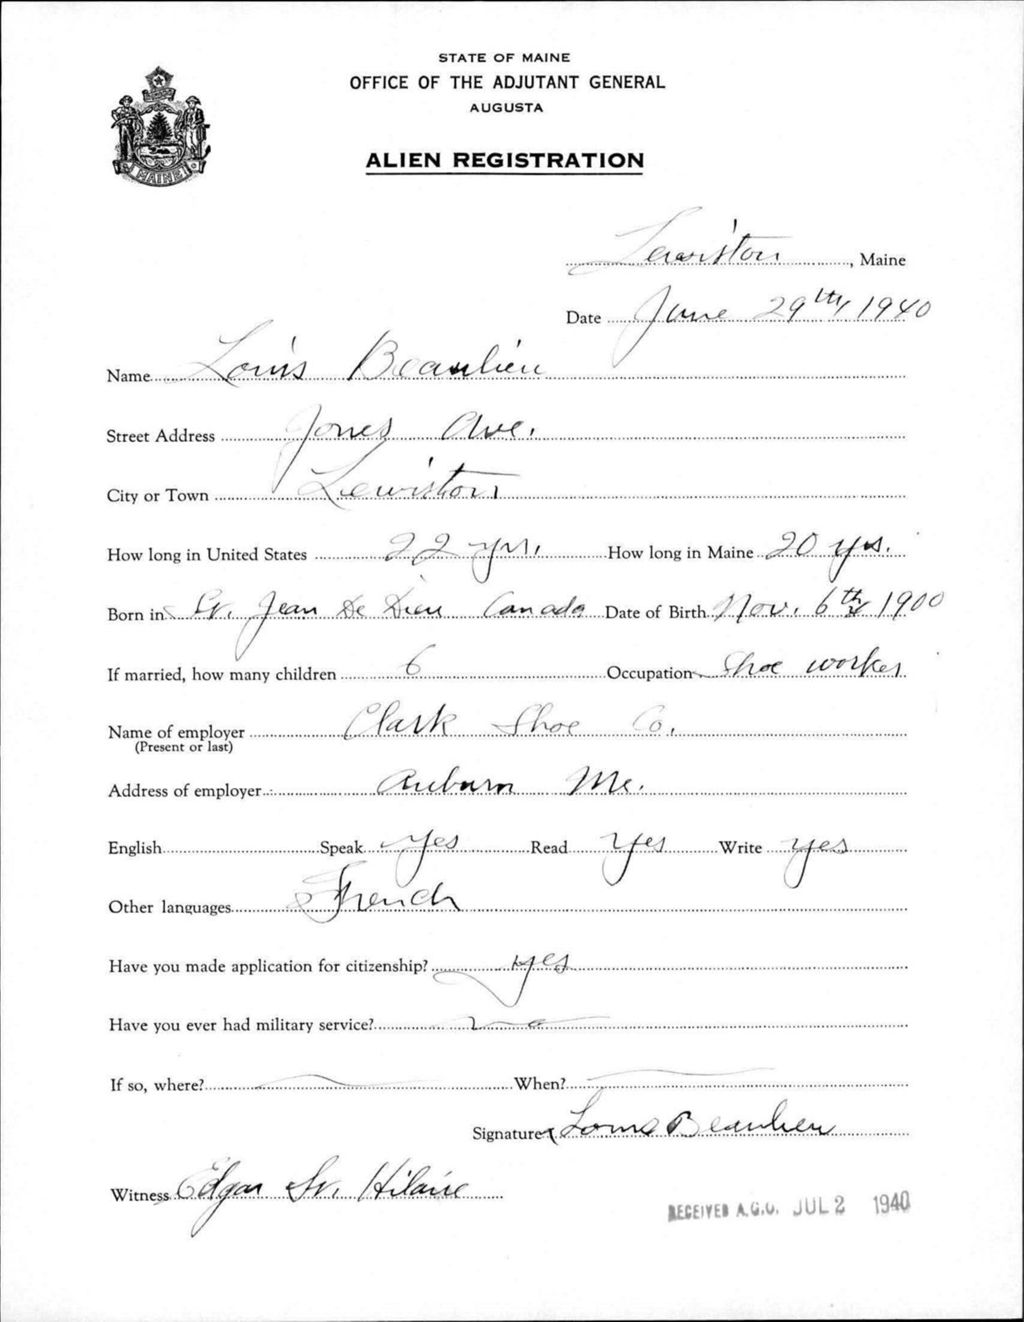 STATE OF MAINE
OFFICE OF THE ADJUTANT GENERAL
AUGUSTA
ALIEN REGISTRATION
MAINE
Lewiston, Maine
Date June 29th, 1940
Name Louis Beaulieu
Street Address Jones Ave.
City or Town Lewiston
How long in United States 22 yrs. How long in Maine 20 yrs.
Born in St. Jean De Dieu Canada Date of Birth Nov. 6th 1900
If married, how many children 6 Occupation Shoe worker
Name of employer Clark Shoe Co.
(Present or last)
Address of employer Auburn Me.
English Speak yes Read Yes Write yes
Other languages French
Have you made application for citizenship? yes
Have you ever had military service? no
If so, where? When?
Signature Louis Beaulieu
Witness Edgar St. Hilaire
RECEIVED A.G.O. JUL 2 1940